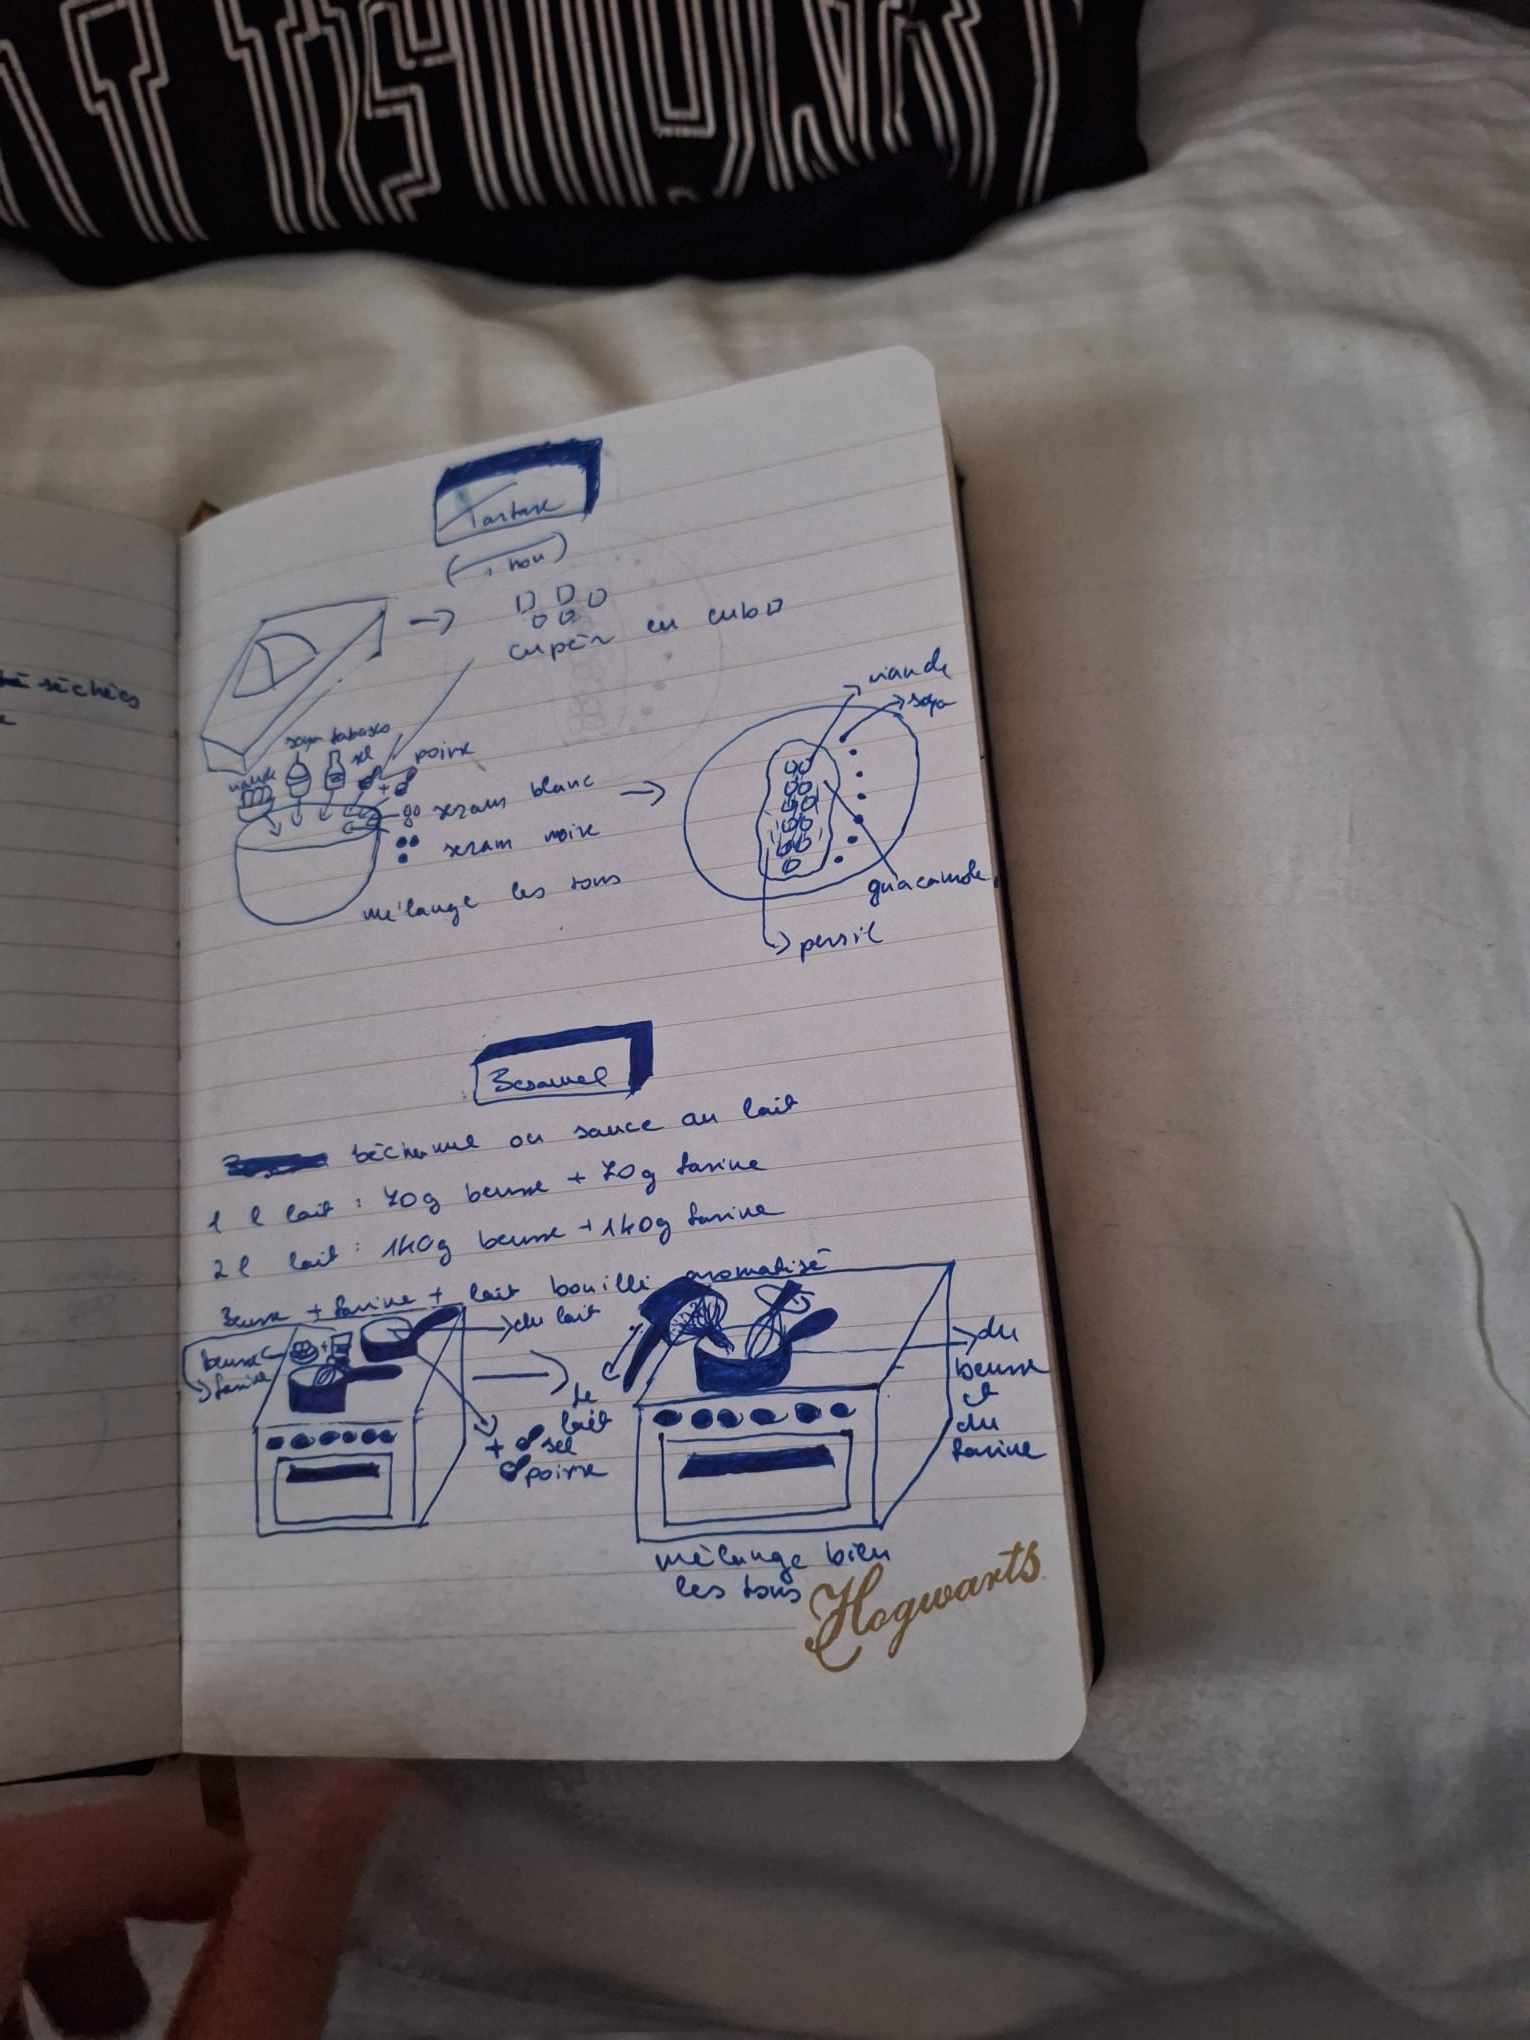 séchées
Tartare
cupeir en cub
viande
soya
soya tabasco
viande
sel
poivre
sezam blanc
sezam noire
mélange les tous
guacamole
persil
Besamel
béchamel ou sauce au lait
1 l lait : 70g beurre + 70g farine
2 l lait : 140g beurre + 140g farine
Beurre + farine + lait bouilli aromatisé
beurre
farine
du lait
+ sel
poivre
le
lait
du
beurre
et
du
farine
mélange bien
les tous
Hogwarts